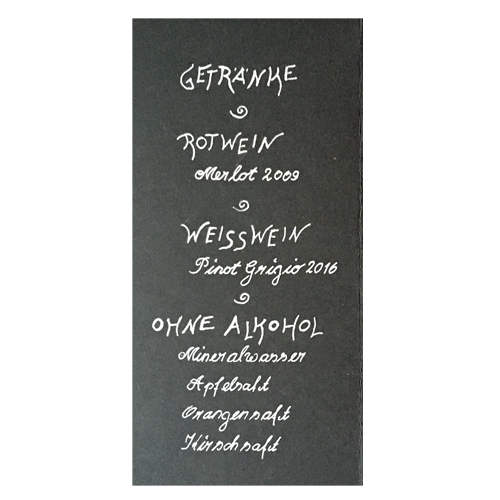 GETRÄNKE
ROTWEIN
Merlot 2009
WEISSWEIN
Pinot Grigio 2016
OHNE ALKOHOL
Mineralwasser
Apfelsaft
Orangensaft
Kirschsaft